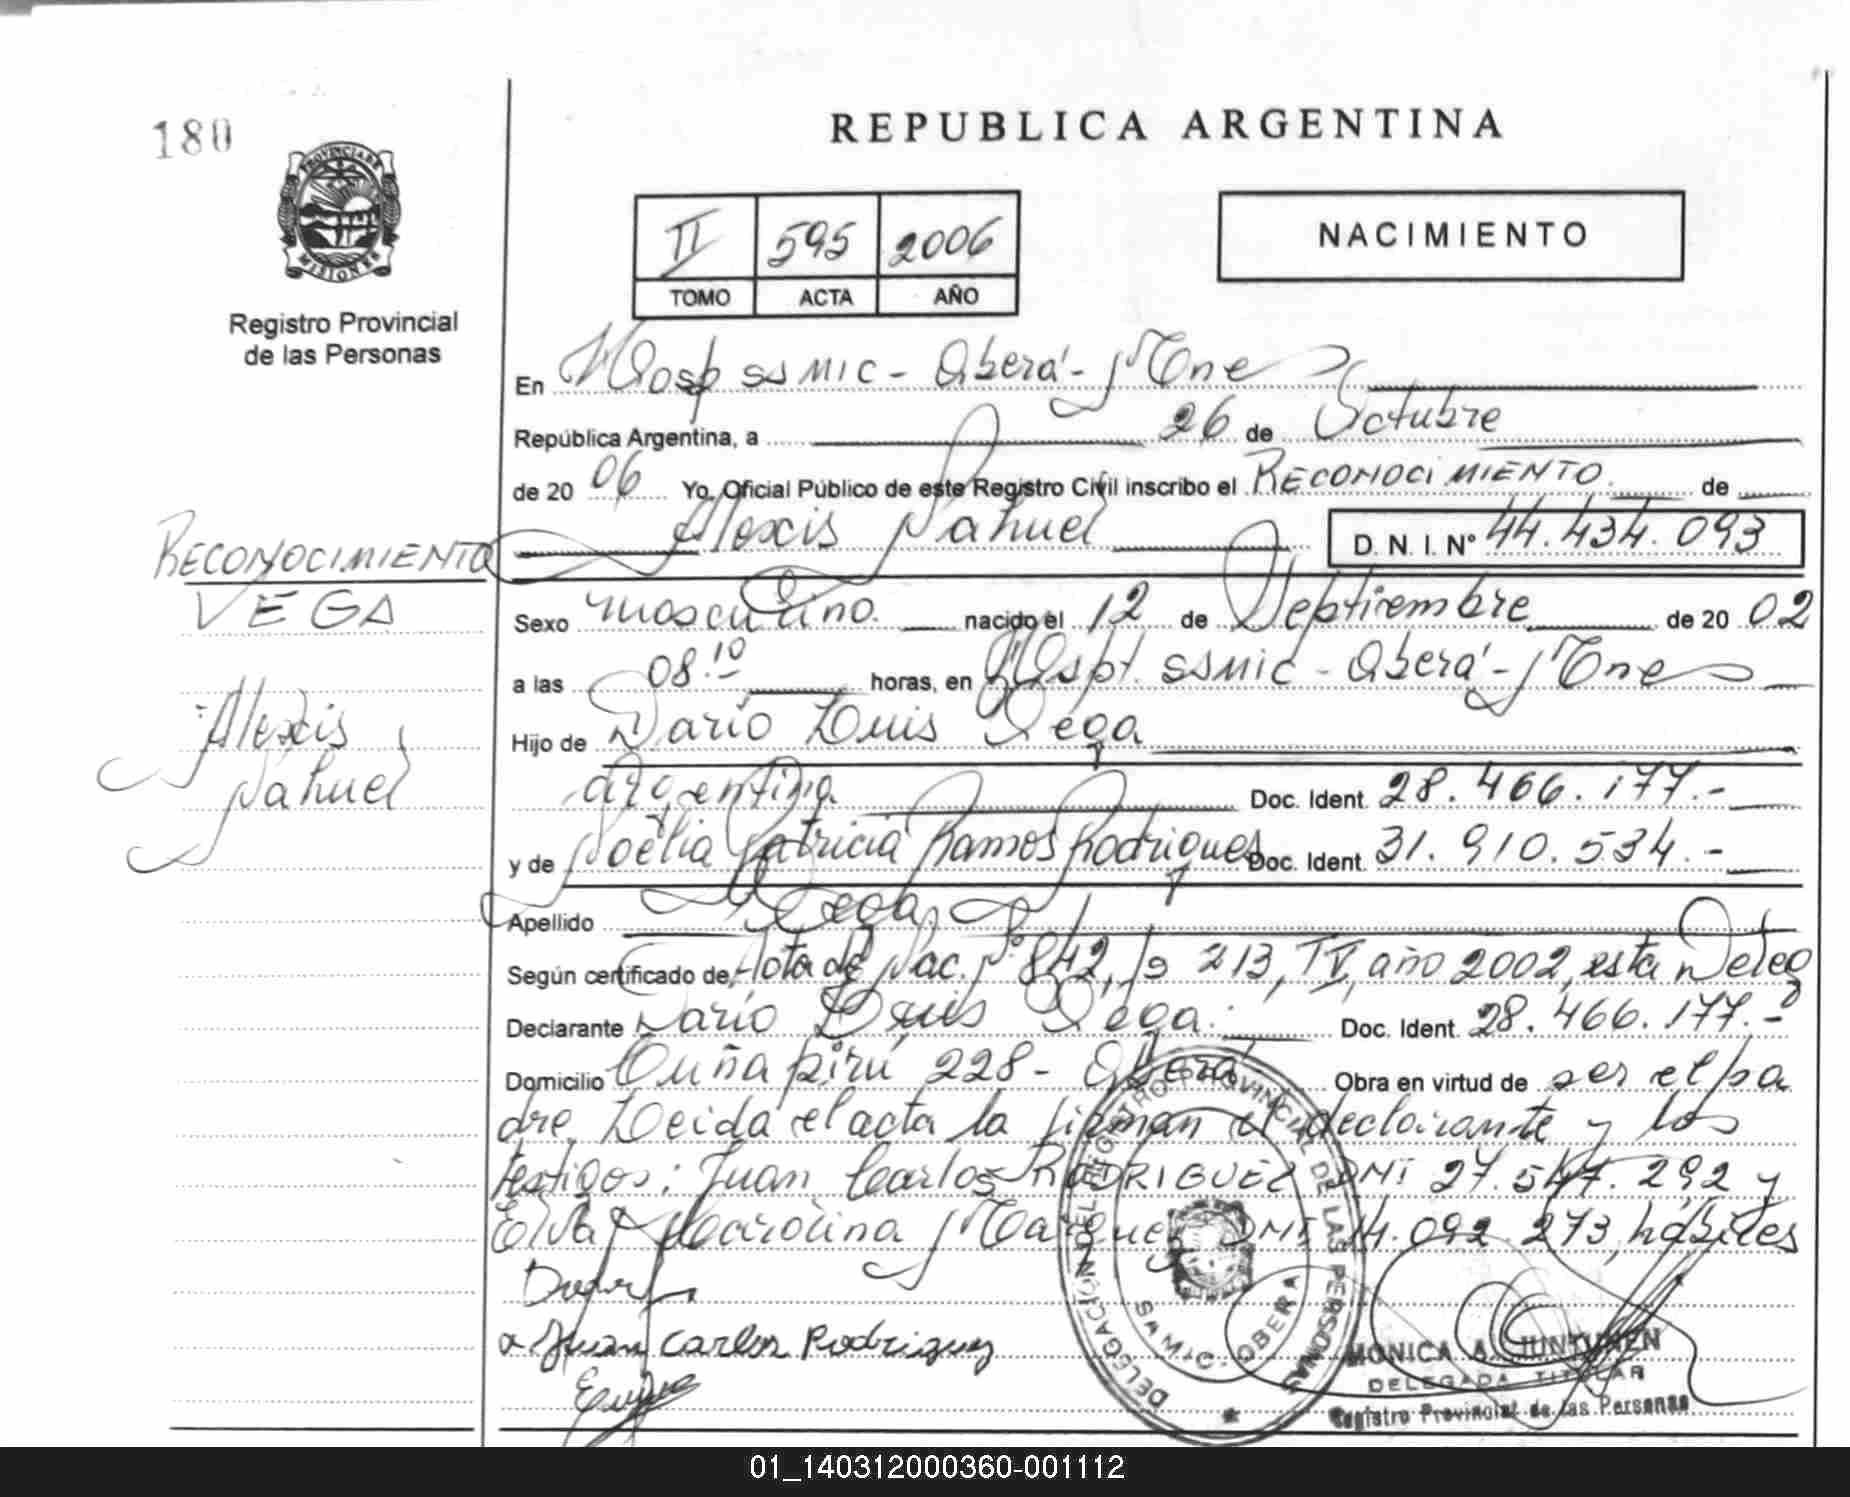 180
REPUBLICA ARGENTINA
PROVINCIA DE MISIONES
Registro Provincial
de las Personas
II 595 2006
TOMO ACTA AÑO
NACIMIENTO
En Hosp ssmic - Oberá - Mnes
República Argentina, a 26 de Octubre
de 20 06 Yo, Oficial Público de este Registro Civil inscribo el RECONOCIMIENTO de
Alexis Nahuel D. N. I. N° 44.434.093
RECONOCIMIENTO
VEGA
Alexis
Nahuel
Sexo masculino nacido el 12 de Septiembre de 20 02
a las 08:10 horas, en Hospt. ssmic - Oberá - Mnes
Hijo de Darío Luis Vega
argentina Doc. Ident. 28.466.177.-
y de Noelia Patricia Ramos Rodrigues Doc. Ident. 31.910.534.-
Apellido Vega
Según certificado de Acta de Nac. N° 842, fs 213, TV, año 2002, esta Deleg
Declarante Darío Luis Vega. Doc. Ident. 28.466.177.-
Domicilio Cuña pirú 228 - Oberá Obra en virtud de ser el pa
dre. Leida el acta la firman el declarante y los
testigos: Juan Carlos RODRIGUEZ DNI 27.547.292 y
Elva Carolina Marquez DNI 14.092.273, hábiles
Juan Carlos Rodriguez
DELEGACIÓN DEL REGISTRO PROVINCIAL DE LAS PERSONAS
SAMIC-OBERA
MONICA A. JUNTUNEN
DELEGADA TITULAR
Registro Provincial de las Personas
01_140312000360-001112